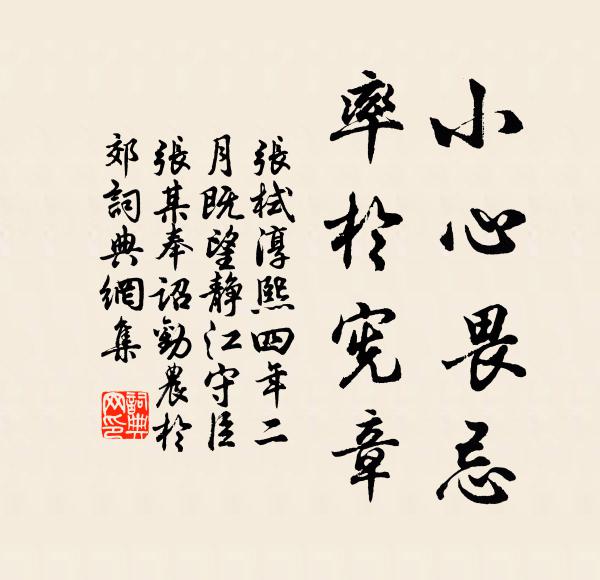 小心畏忌
率於憲章
張栻淳熙四年二
月既望靜江守臣
張某奉詔勸農於
郊詞典網集
詞典
网印